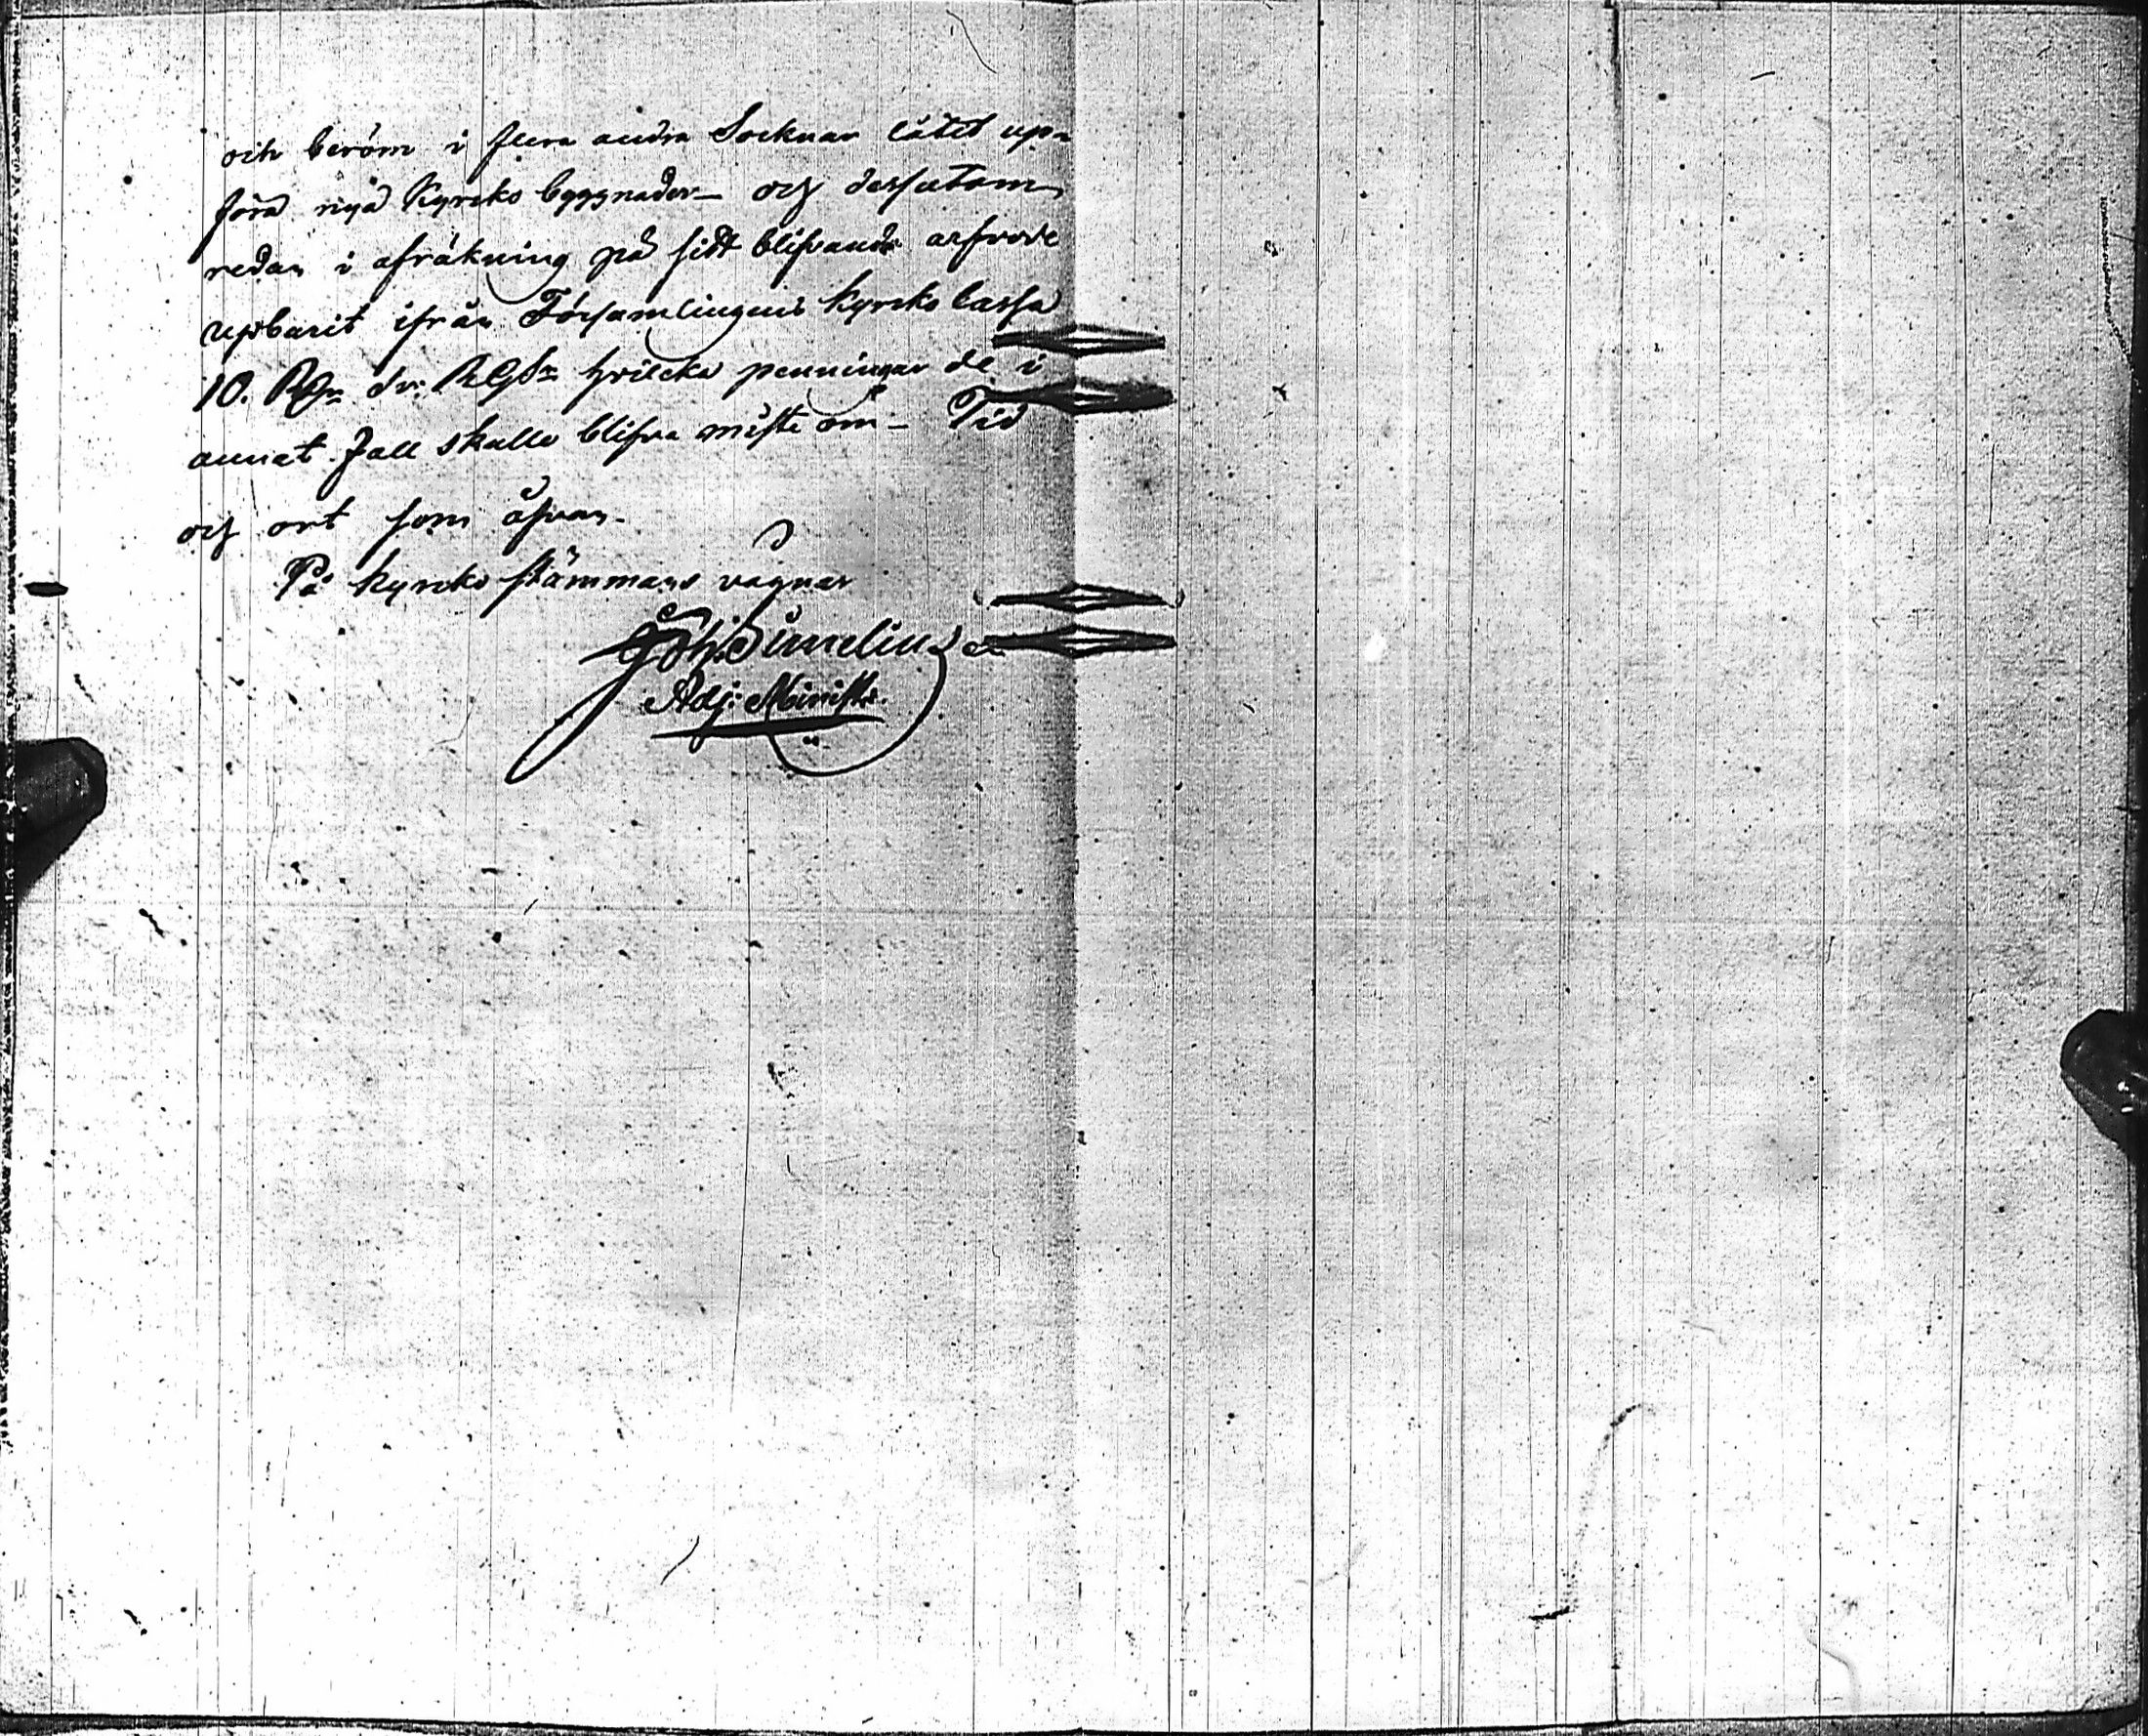 och beröm i flera andra Socknar låtit up-
föra nya Kyrcko byggnader – och dessutom
redan i afräkning på sidt blifvande arfvode
upburit ifrån Församlingens kyrcko cassa
10. Rdr Sv: RGds hvilcka penningar de i
annat fall skulle blifva miste om – Tid
och ort som ofvan.
På kyrcko stämmans vägnar
Joh: Simelius
Adj: Minist: